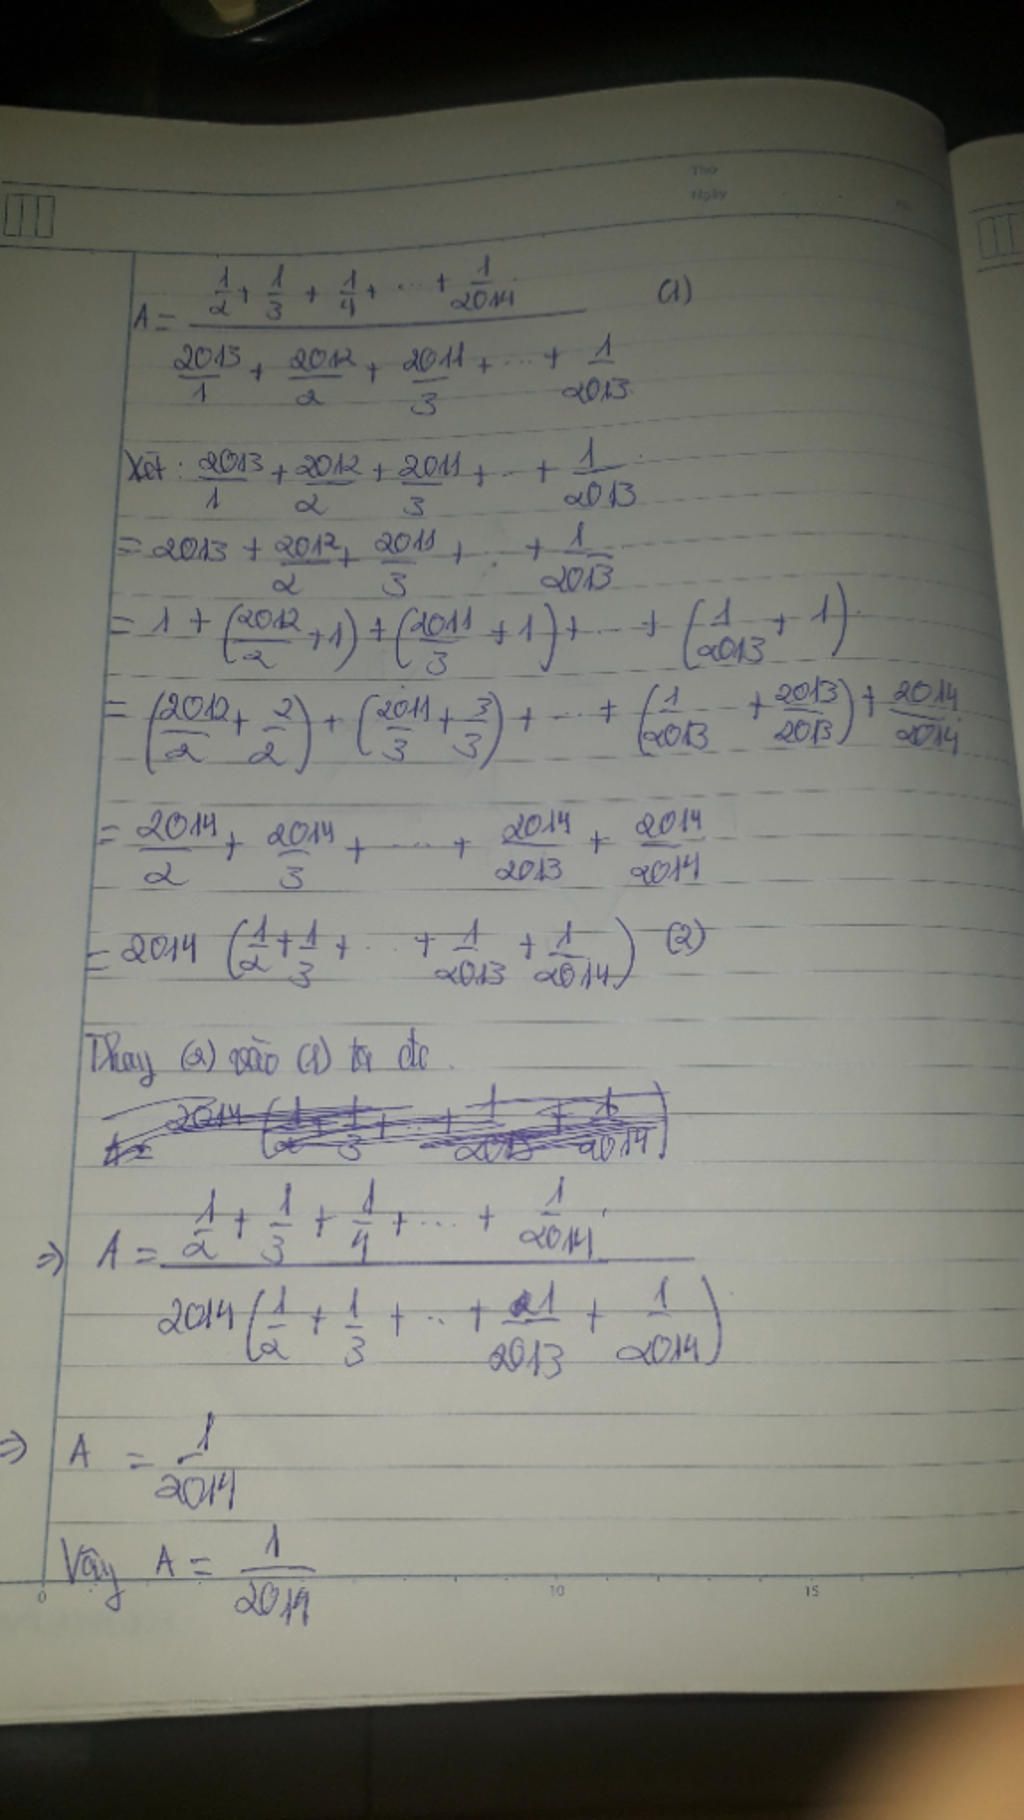 Thứ
Ngày
A = \frac{\frac{1}{2} + \frac{1}{3} + \frac{1}{4} + ... + \frac{1}{2014}}{\frac{2013}{1} + \frac{2012}{2} + \frac{2011}{3} + ... + \frac{1}{2013}} (1)
Xét: \frac{2013}{1} + \frac{2012}{2} + \frac{2011}{3} + ... + \frac{1}{2013}
= 2013 + \frac{2012}{2} + \frac{2011}{3} + ... + \frac{1}{2013}
= 1 + (\frac{2012}{2} + 1) + (\frac{2011}{3} + 1) + ... + (\frac{1}{2013} + 1)
= (\frac{2012}{2} + \frac{2}{2}) + (\frac{2011}{3} + \frac{3}{3}) + ... + (\frac{1}{2013} + \frac{2013}{2013}) + \frac{2014}{2014}
= \frac{2014}{2} + \frac{2014}{3} + ... + \frac{2014}{2013} + \frac{2014}{2014}
= 2014 (\frac{1}{2} + \frac{1}{3} + ... + \frac{1}{2013} + \frac{1}{2014}) (2)
Thay (2) vào (1) ta đc
=> A = \frac{\frac{1}{2} + \frac{1}{3} + \frac{1}{4} + ... + \frac{1}{2014}}{2014 (\frac{1}{2} + \frac{1}{3} + ... + \frac{1}{2013} + \frac{1}{2014})}
=> A = \frac{1}{2014}
Vậy A = \frac{1}{2014}
0 5 10 15